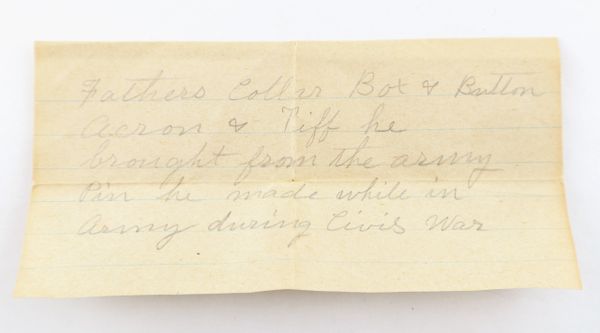 Fathers Collar Box & Button
Acron & Tiff he
brought from the army
Pin he made while in
Army during Civis War